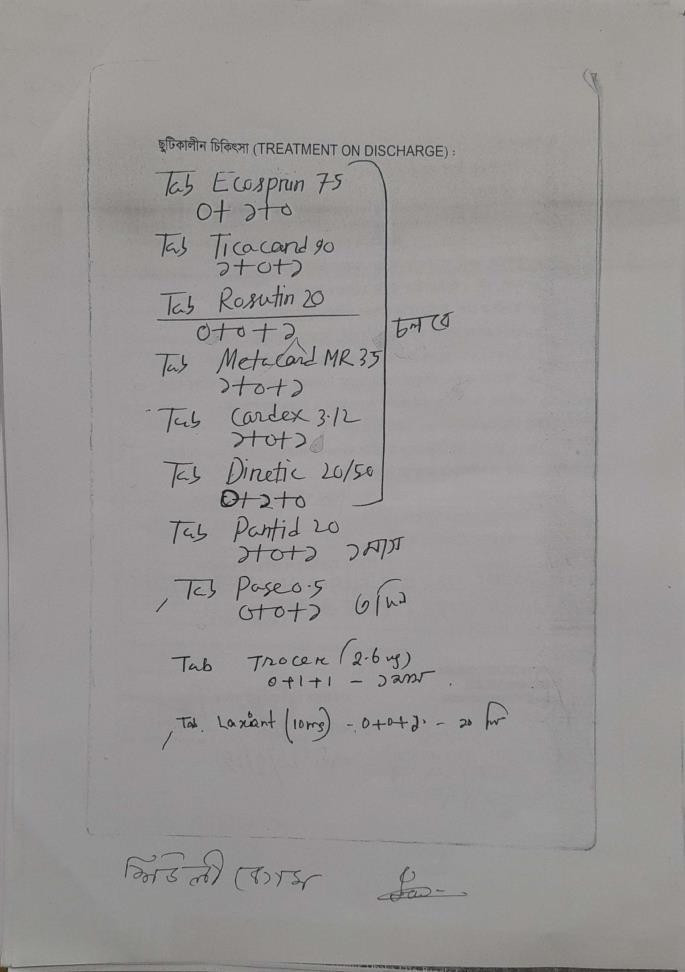 ছুটিকালীন চিকিৎসা (TREATMENT ON DISCHARGE) :
Tab Ecosprin 75
0+১+0
Tab Ticacard 90
১+0+১
Tab Rosutin 20
0+0+১
চলবে
Tab Metacard MR 35
১+0+১
Tab Cardex 3.12
১+0+১
Tab Dinetic 20/50
0+১+0
Tab Pantid 20
১+0+১ ১ মাস
Tab Pase 0.5
0+0+১
Tab Trocer (2.6 mg)
0+1+1 - ১ মাস
Tab. Laxiant (10mg) - 0+0+১ - ২০ দিন